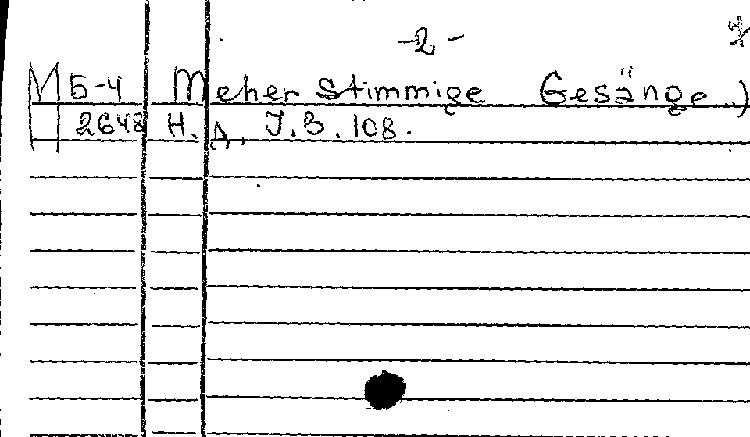 -2-
М Б-4 Meher Stimmige Gesänge.)
2648 H. A. J. B. 108.